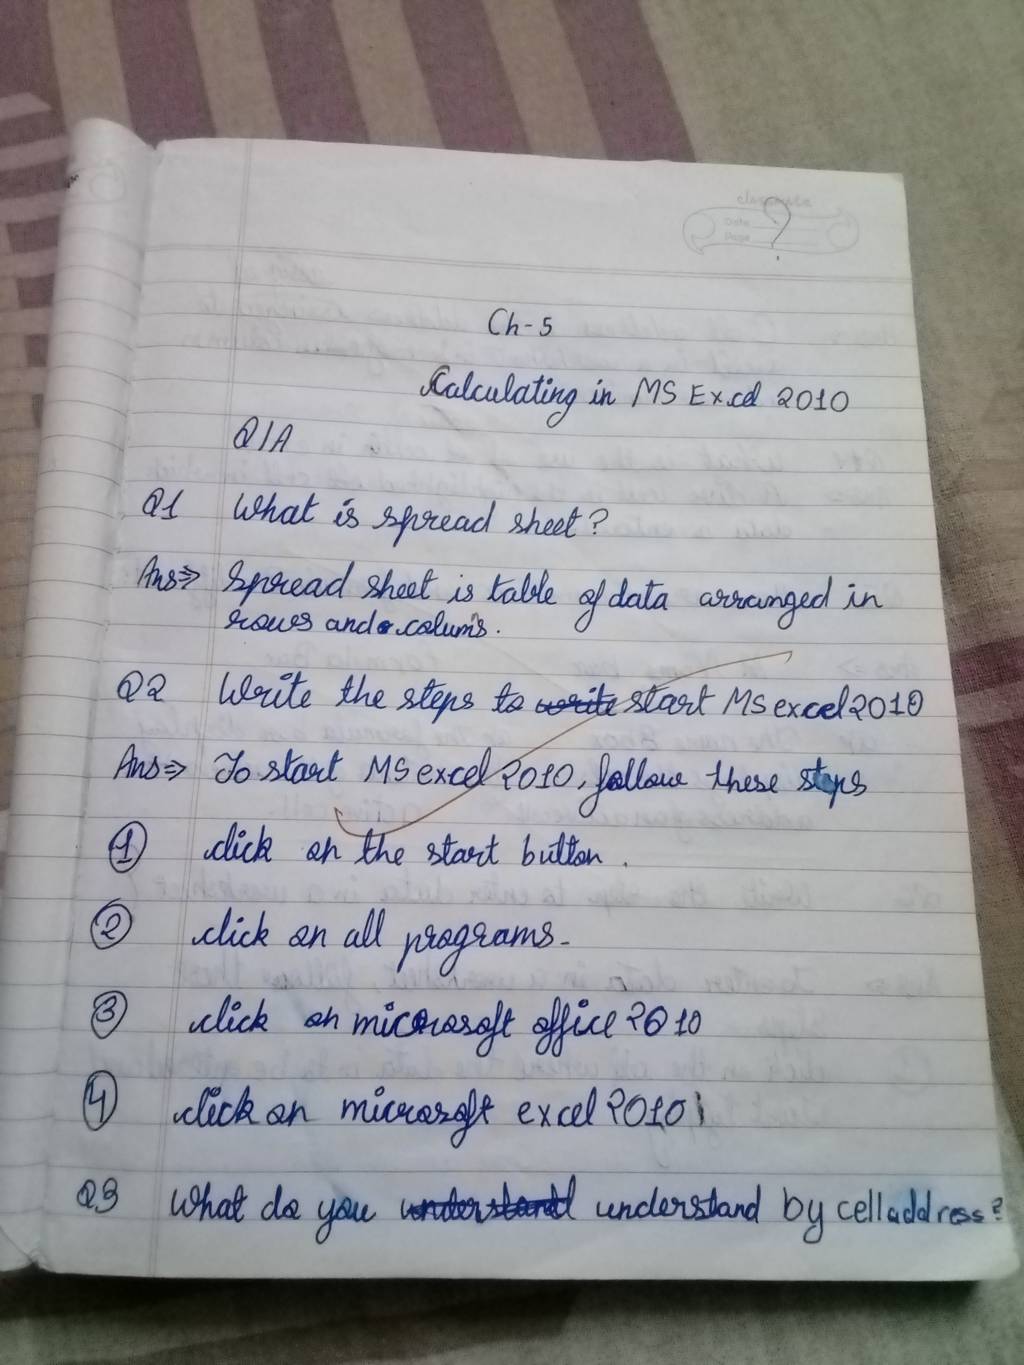 classmate
Date
Page
?
Ch-5
Calculating in MS Excel 2010
Q/A
Q1 What is spread sheet?
Ans⇒ Spread sheet is table of data arranged in
rows and colums.
Q2 Write the steps to write start MS excel 2010
Ans⇒ To start MS excel 2010, follow these steps
① click on the start button.
② click on all programs.
③ click on microsoft office 2010
④ click on microsoft excel 2010
Q3 What do you understand understand by cell address?